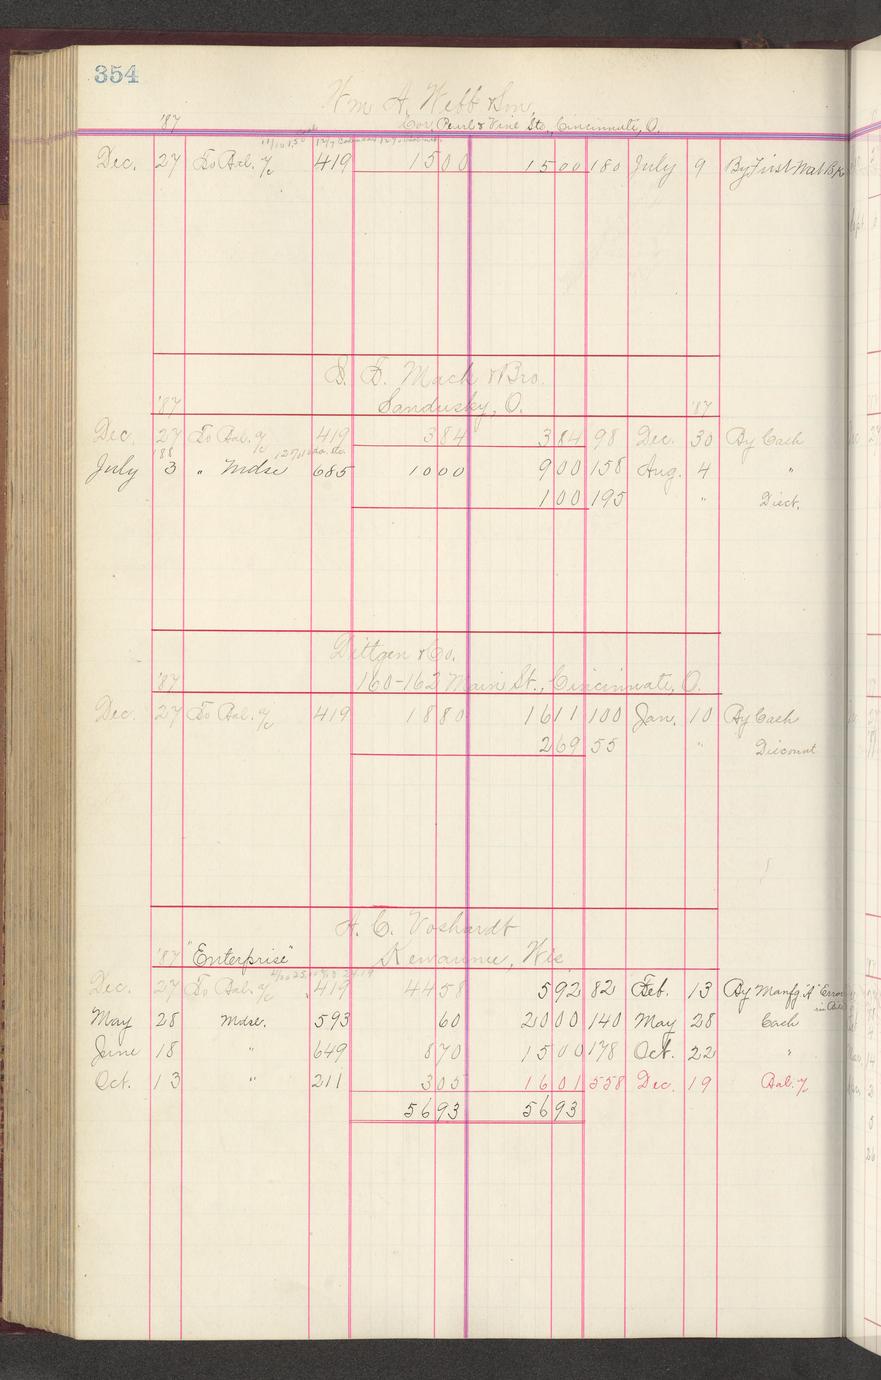 354
Wm A. Webb & Son,
'87 Cor. Pearl & Vine Sts., Cincinnati, O.
Dec. 27 To Bal. a/c 419 1500 1500 180 July 9 By First Nat Bk
S. F. Mack & Bro.
'87 Sandusky, O. '87
Dec. 27 To Bal. a/c 419 384 384 98 Dec. 30 By Cash
'88
July 3 " Mdse 685 1000 900 158 Aug. 4 "
100 195 " Disct.
Dittgen & Co.
'87 160-162 Main St., Cincinnati, O.
Dec. 27 To Bal. a/c 419 1880 1611 100 Jan. 10 By Cash
269 55 " Discount
A. C. Voshardt
'87 "Enterprise" Kewaunee, Wis
Dec. 27 To Bal. a/c 419 4458 592 82 Feb. 13 By Manfg. "A" Error
in
May 28 Mdse. 593 60 2000 140 May 28 Cash
June 18 " 649 870 1500 178 Oct. 22 "
Oct. 13 " 211 305 1601 558 Dec. 19 Bal. a/c
5693 5693